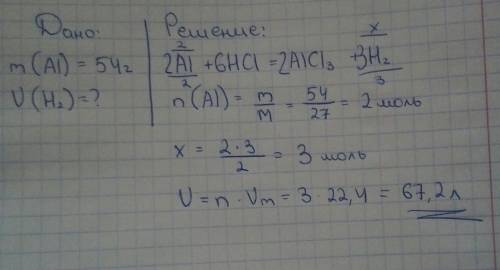 Дано:
m(Al) = 54г
V(H₂) = ?
Решение:
2 x
2Al + 6HCl = 2AlCl₃ + 3H₂
2 3
n(Al) = m/M = 54/27 = 2 моль
x = 2·3/2 = 3 моль
V = n · Vm = 3 · 22,4 = 67,2 л